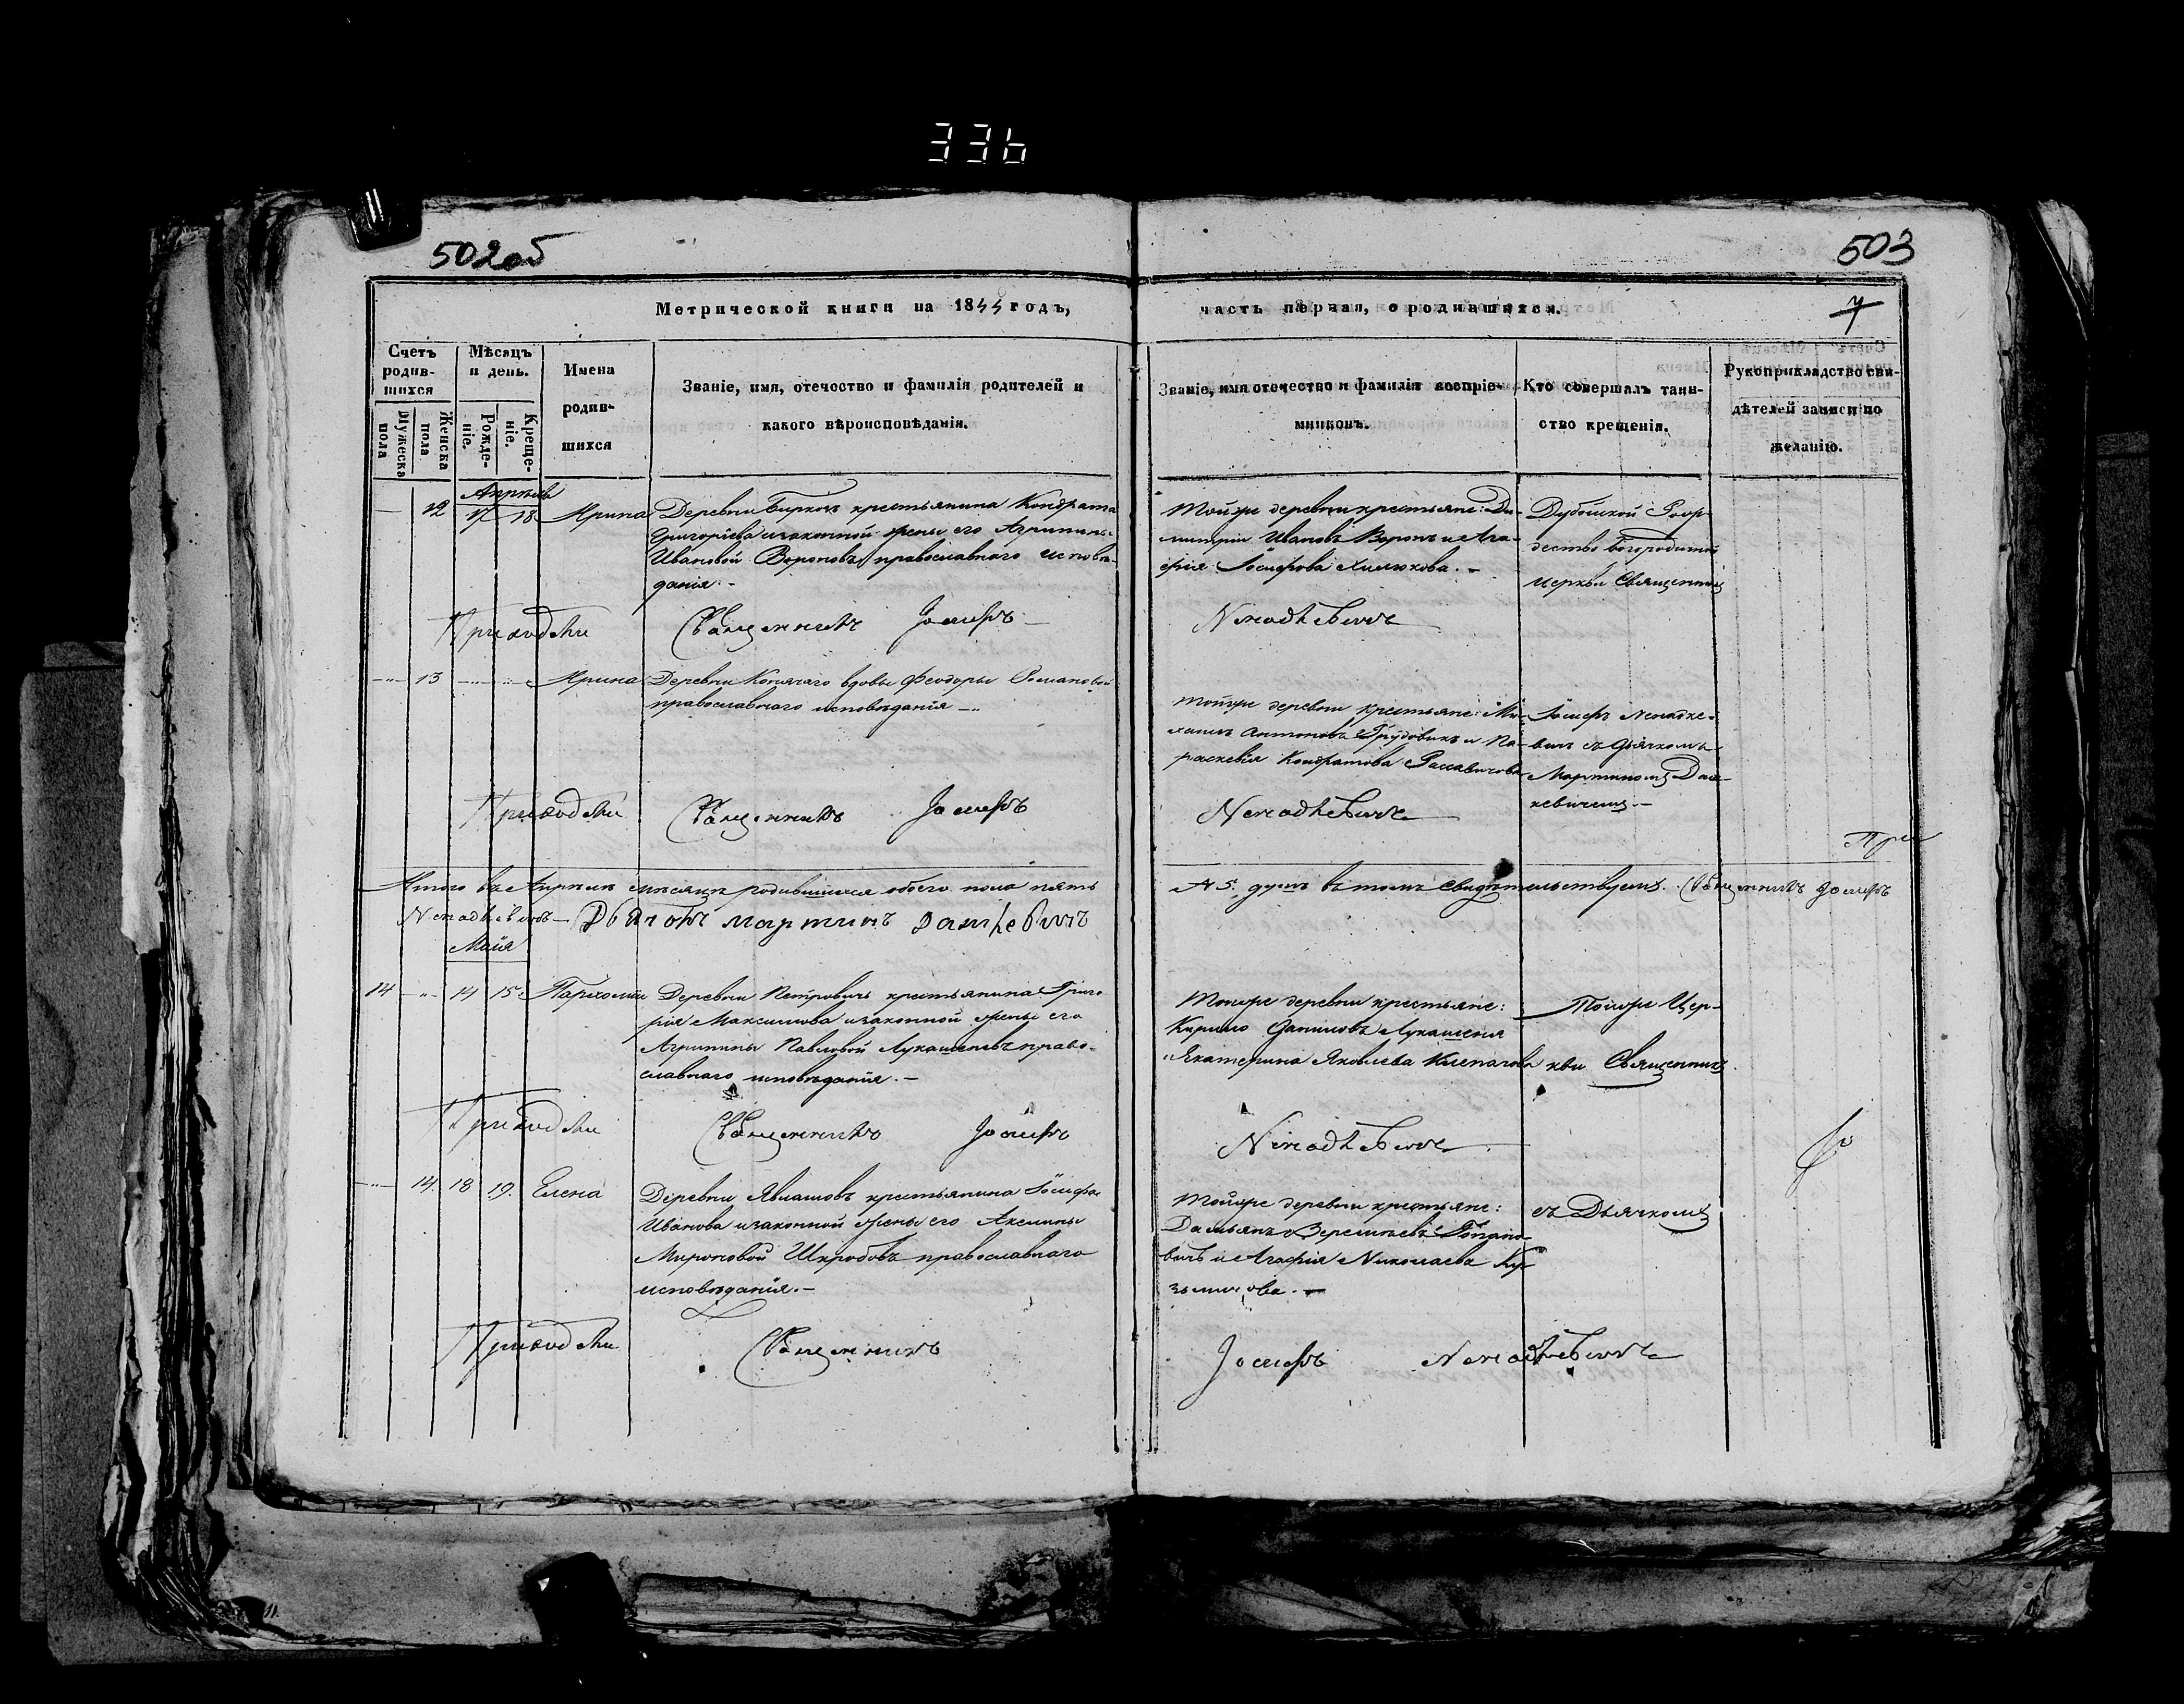 336
502об
503
Метрической книги на 1844 годъ,
часть первая, о родившихся.
7
Счетъ родив-шихся
Мѣсяцъ и день.
Имена родив-шихся
Званіе, имя, отечество и фамилія родителей и
какого вѣроисповѣданія.
Званіе, имя отечество и фамилія воспріе-
мниковъ.
Кто совершалъ таин-
ство крещенія.
Рукоприкладство сви-
дѣтелей записи по
желанію.
Мужеска пола
Женска пола
Рожде-ніе.
Креще-ніе.
Апрѣль
12 17 18 Ирина
Деревни крестьянина Кондрата
Григоріева и законной жены его Агрипины
Ивановой Вороновъ православнаго исповѣ-
данія.-
Тойже деревни крестьяне: Ди-
митрій Ивановъ Воронъ и Ага-
фія Іосифова
Дубойской Рож-
дество богородитной
церкви Священникъ
Приходскій Священникъ Іосифъ
Ненадкевичъ
13 Ирина
Деревни вдовы Феодоры Романовой
православнаго исповѣданія
Тойже деревни крестьяне: Ми-
хаилъ Антоновъ и Па-
раскевія Кондратова
Іосифъ Ненадке-
вичъ съ дьячкомъ
Мартиномъ Даш-
кевичемъ.-
Приходскій Священникъ Іосифъ
Ненадкевичъ
При
Итого въ Апрѣлѣ мѣсяцѣ родившихся обоего пола пять
№ 5. душъ въ томъ свидѣтельствуемъ. Священникъ Іосифъ
Ненадкевичъ Дьячокъ Мартинъ Дашкевичъ
Маія
14 14 15
Деревни Петровичъ крестьянина Григо-
рія Максимова и законной жены его
Агрипины Павловой Лукашевъ право-
славнаго исповѣданія.-
Тойже деревни крестьяне:
Кирило Даниловъ Лукашеня
и Екатерина Яковлева
Тойже Цер-
кви Священникъ
Приходскій Священникъ Іосифъ
Ненадкевичъ
14. 18 19. Елена
Деревни крестьянина Іосифа
Иванова и законной жены его Акелины
Мироновой Шкробовъ православнаго
исповѣданія.-
Тойже деревни крестьяне:
Дамьянъ
вичъ и Агафія Николаева Ку-
зьмичова.
съ Дьячкомъ
Приходскій Священникъ
Іосифъ Ненадкевичъ